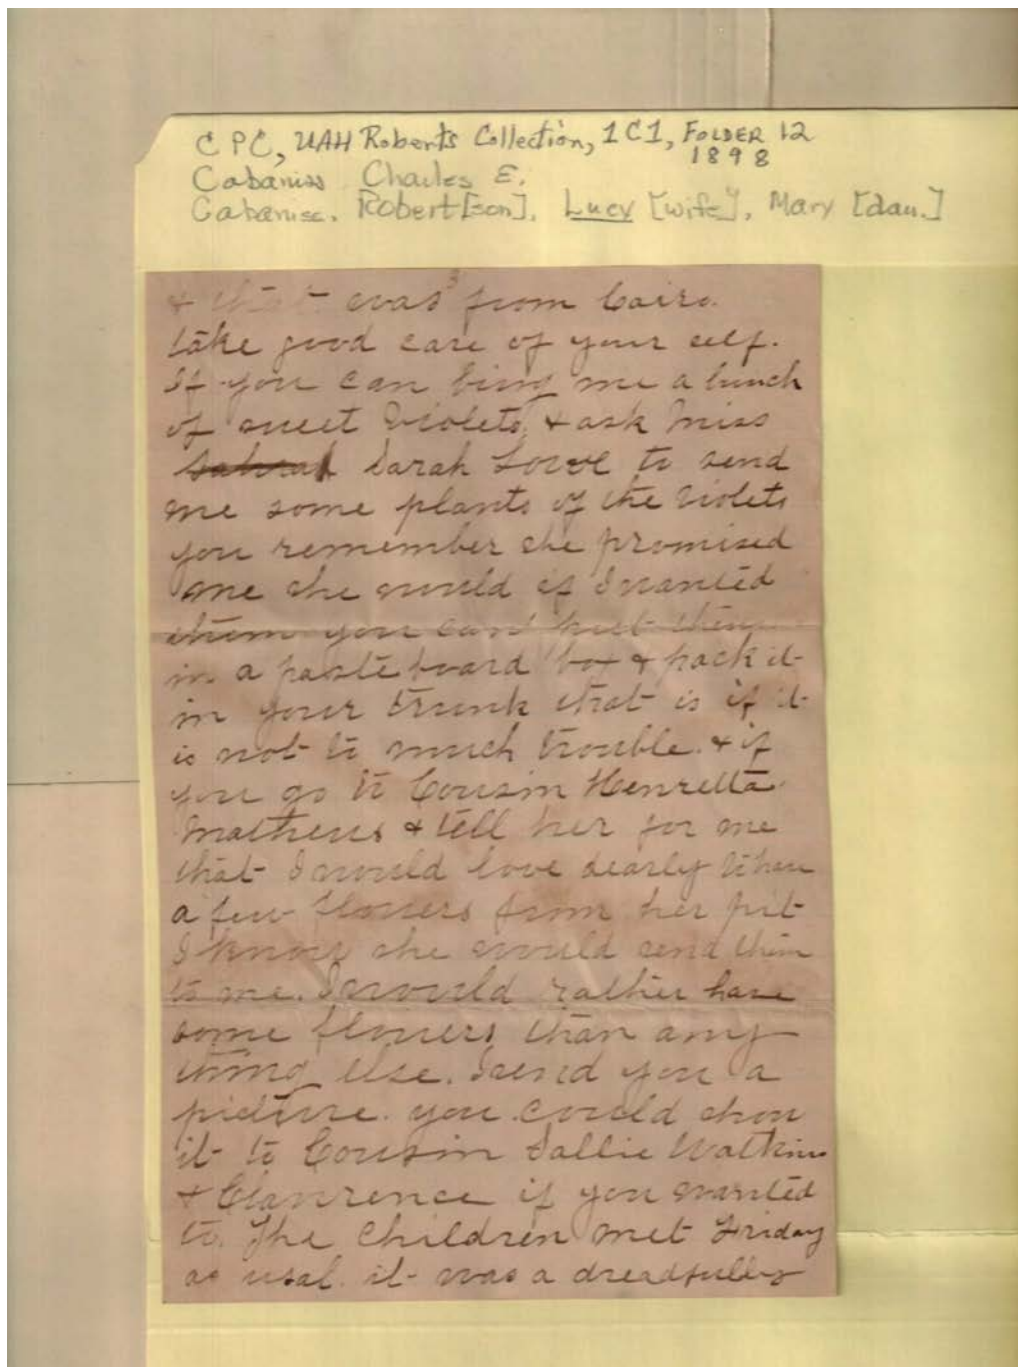 CPC, UAH Roberts Collection, 1C1, FOLDER 12
1898
Cabaniss Charles E.
Cabaniss. Robert [son], Lucy [wife], Mary [dau.]
3
& that was from Cairo.
take good care of your self.
If you can bing me a bunch
of sweet violets, & ask Miss
Sarah Lowe to send
me some plants of the violets
you remember she promised
me she would if I wanted
them you can put them
in a paste board box & pack it
in your trunk that is if it
is not to much trouble. & if
you go to Cousin Henretta
Mathews & tell her for me
that I would love dearly to have
a few flowers from her pit
I know she would send them
to me. I would rather have
some flowers than any
thing else. I send you a
picture. you could show
it to Cousin Sallie Watkins
& Clawrence if you wanted
to. The children met Friday
as usal. it was a dreadfully